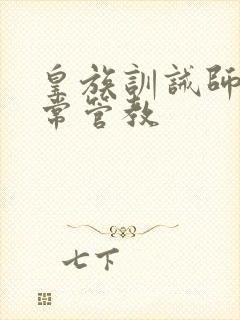 皇族訓誡師
常管教
七下